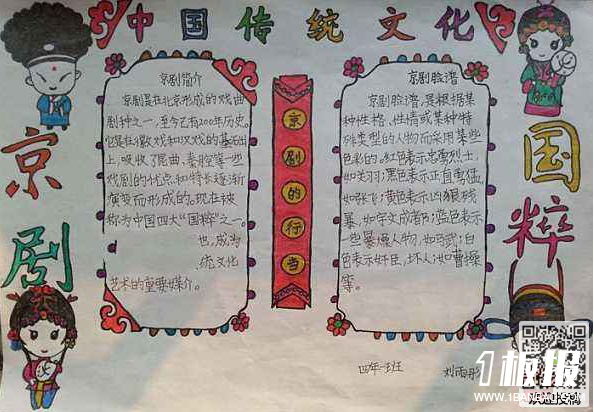 中国传统文化
京剧
国粹
京剧简介
京剧是在北京形成的戏曲
剧种之一,至今已有200年历史。
它是在徽戏和汉戏的基础
上,吸收了昆曲、秦腔等一些
戏剧的优点和特长逐渐
演变而形成的。现在被
称为中国四大"国粹"之一。
也,成为
统文化
艺术的重要媒介。
京剧的行当
京剧脸谱
京剧脸谱,是根据某
种性格、性情或某种特
殊类型的人物而采用某些
色彩的。红色表示忠勇烈士,
如关羽;黑色表示正直勇猛
如张飞;黄色表示凶狠残
暴,如宇文成都;蓝色表示
一些暴燥人物,如马武;白
色表示奸臣,坏人;如曹操
等。
四年一班
1板报
WWW.1BANBAO.COM